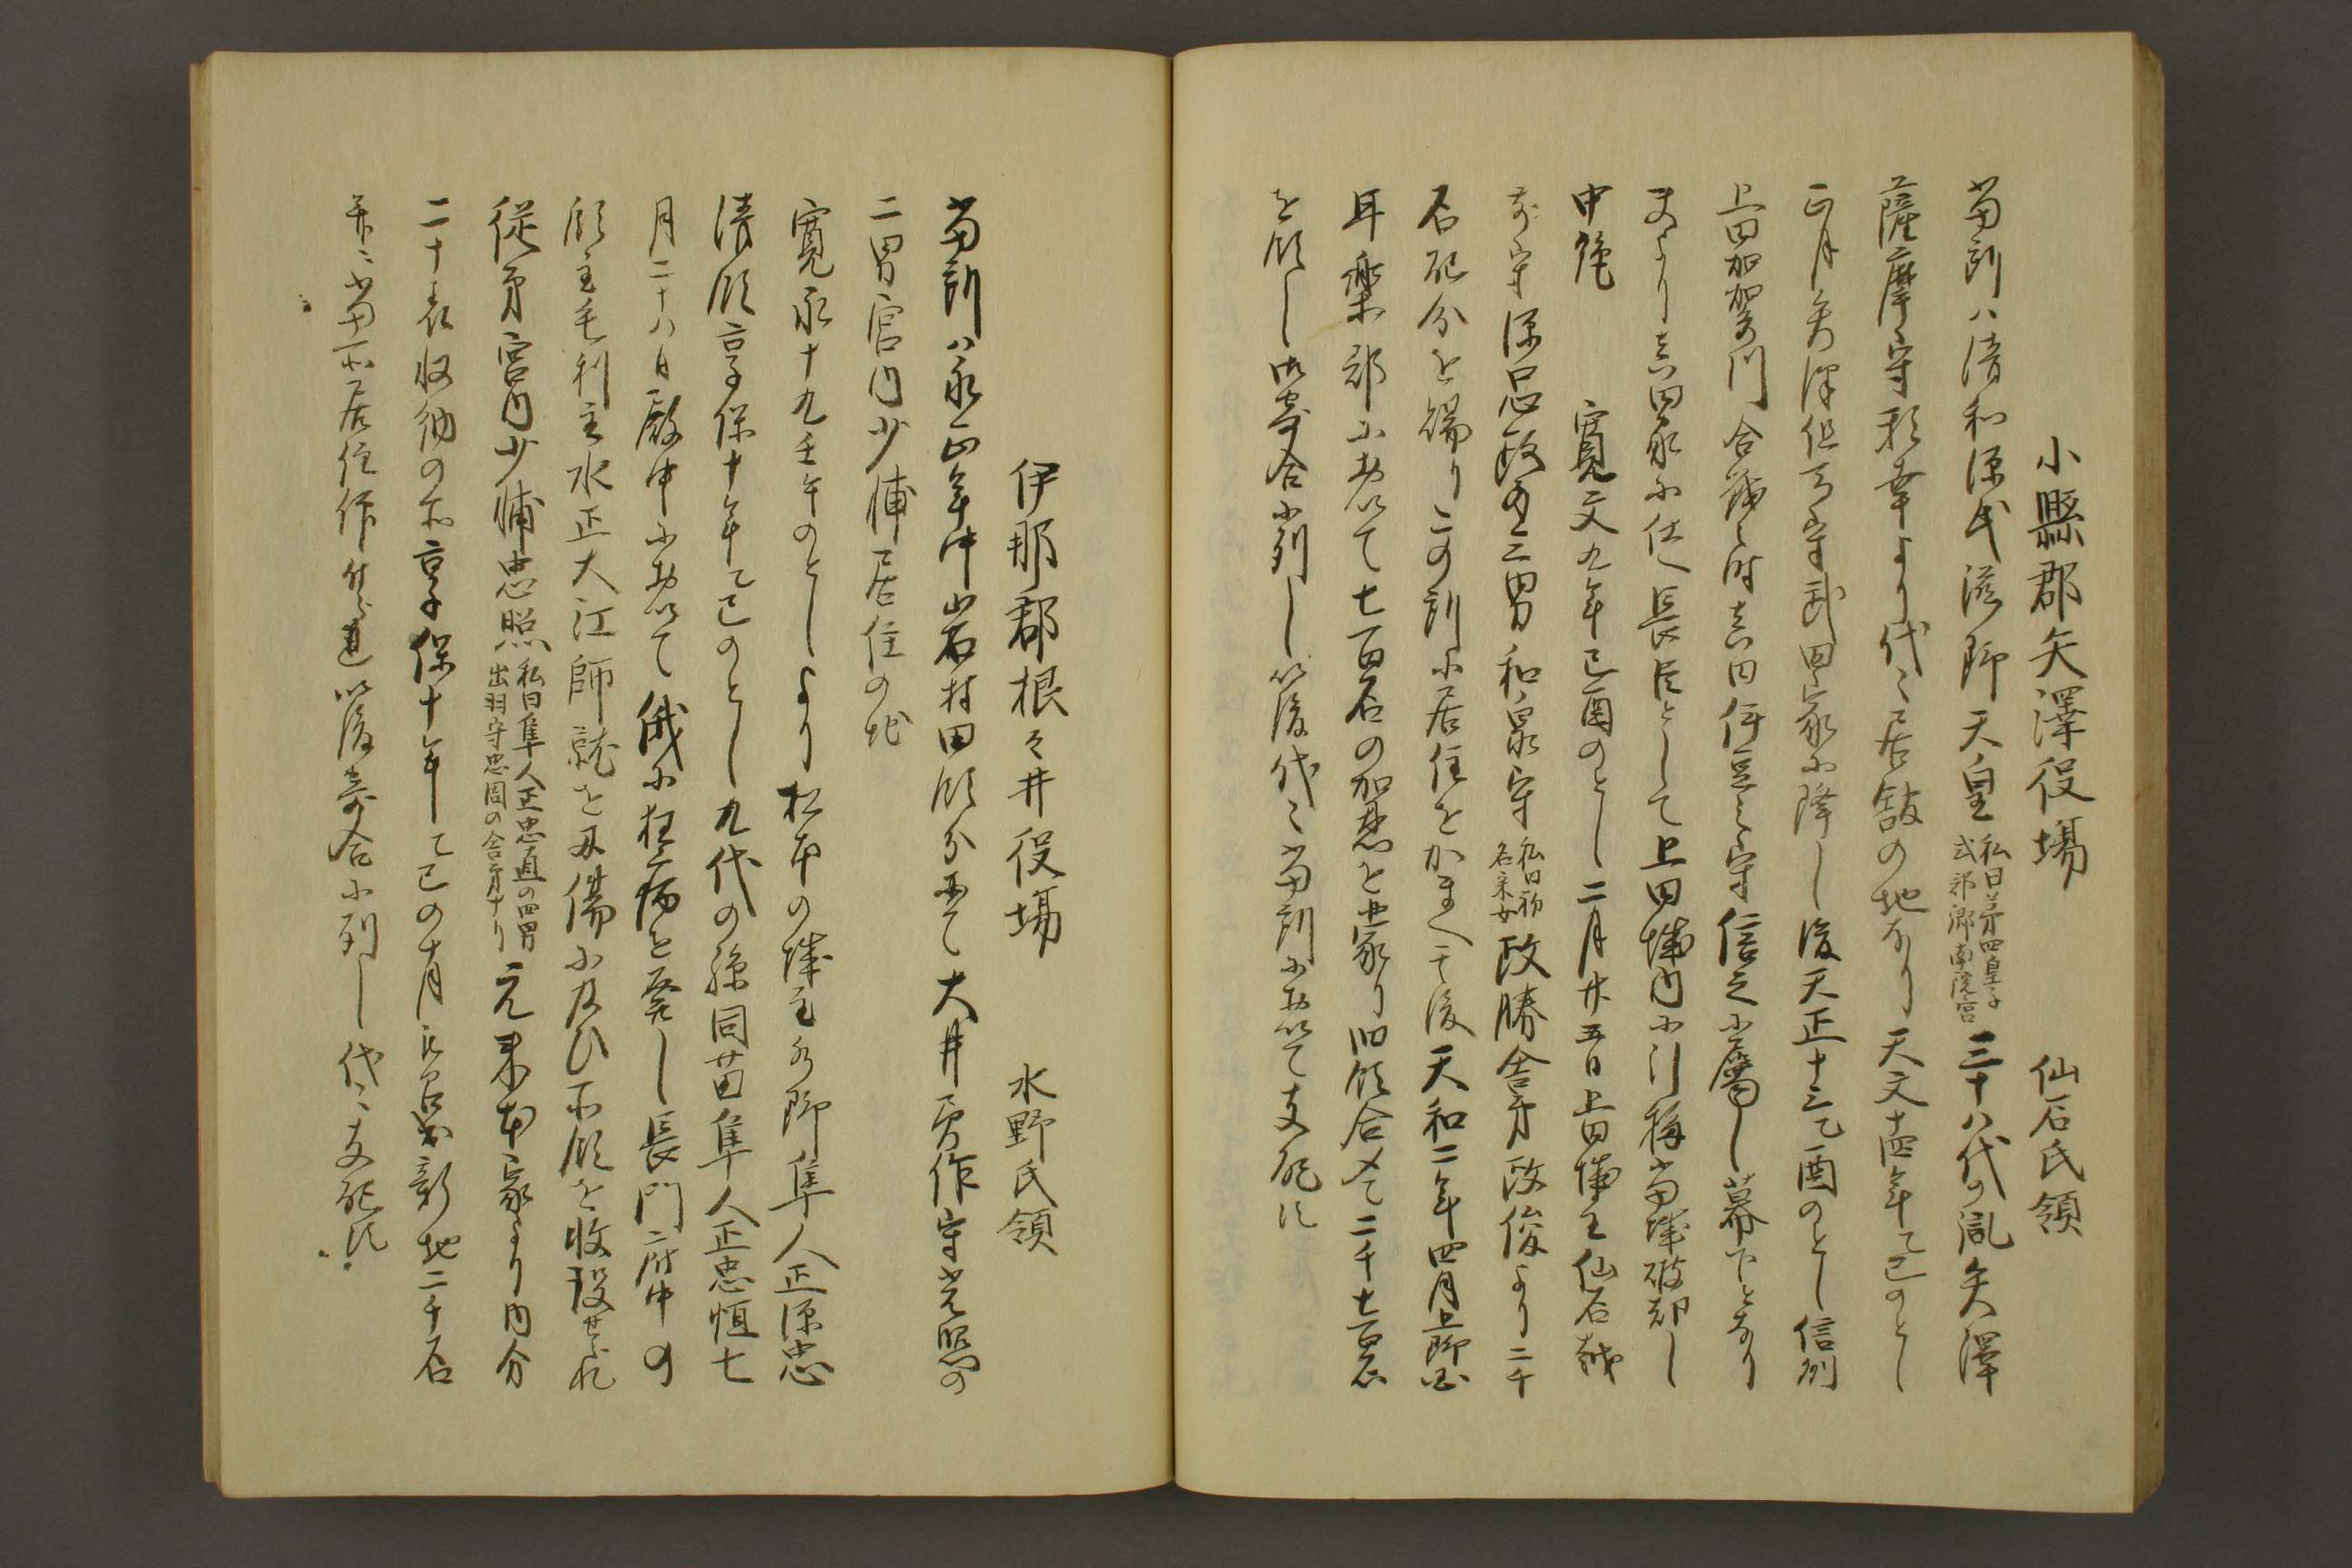 小縣郡矢澤役場　仙石氏領
當所ハ清和源氏滋野天皇私曰第四皇子式部卿南院宮三十八代の胤矢澤
薩摩守頼幸より代々居舘の地なり天文十四年乙巳のとし
正月矢澤但馬守武田家に降し後天正十三乙酉のとし信州
上田加賀川合戦之時真田伊豆之守信之に属し幕下となり
夫より真田家に仕へ長臣として上田城内に引移當城破却し
中絶　寛文九年己酉のとし二月廿五日上田城主仙石越
前守源忠政か二男和泉守私曰初名采女政勝舎弟政俊より二千
石配分を賜りこの所に居住をかまへ其後天和二年四月上野国
耳樂郡において七百石の加恩を蒙り旧領合メて二千七百石
を領し御寄合に列し以後代々當所において支配す
伊那郡根々井役場　水野氏領
當所ハ永正年中岩村田領分にて大井美作守光照の
二男宮内少輔居住の地
寛永十九壬午のとしより松本の城主水野隼人正源忠
清領享保十年乙巳のとし九代の孫同苗隼人正忠恒七
月二十八日殿中において俄に狂病を發し長門府中の
領主毛利主水正大江師就を刃傷に及ひ所領を收没せられ
従弟宮内少輔忠照私曰隼人正忠直の四男出羽守忠周の舎弟ナリ元来本家より内分
二千表収納の所享保十年乙巳の十月被召出新地二千石
并當所居住作付被遣以後寄合に列し代々支配す